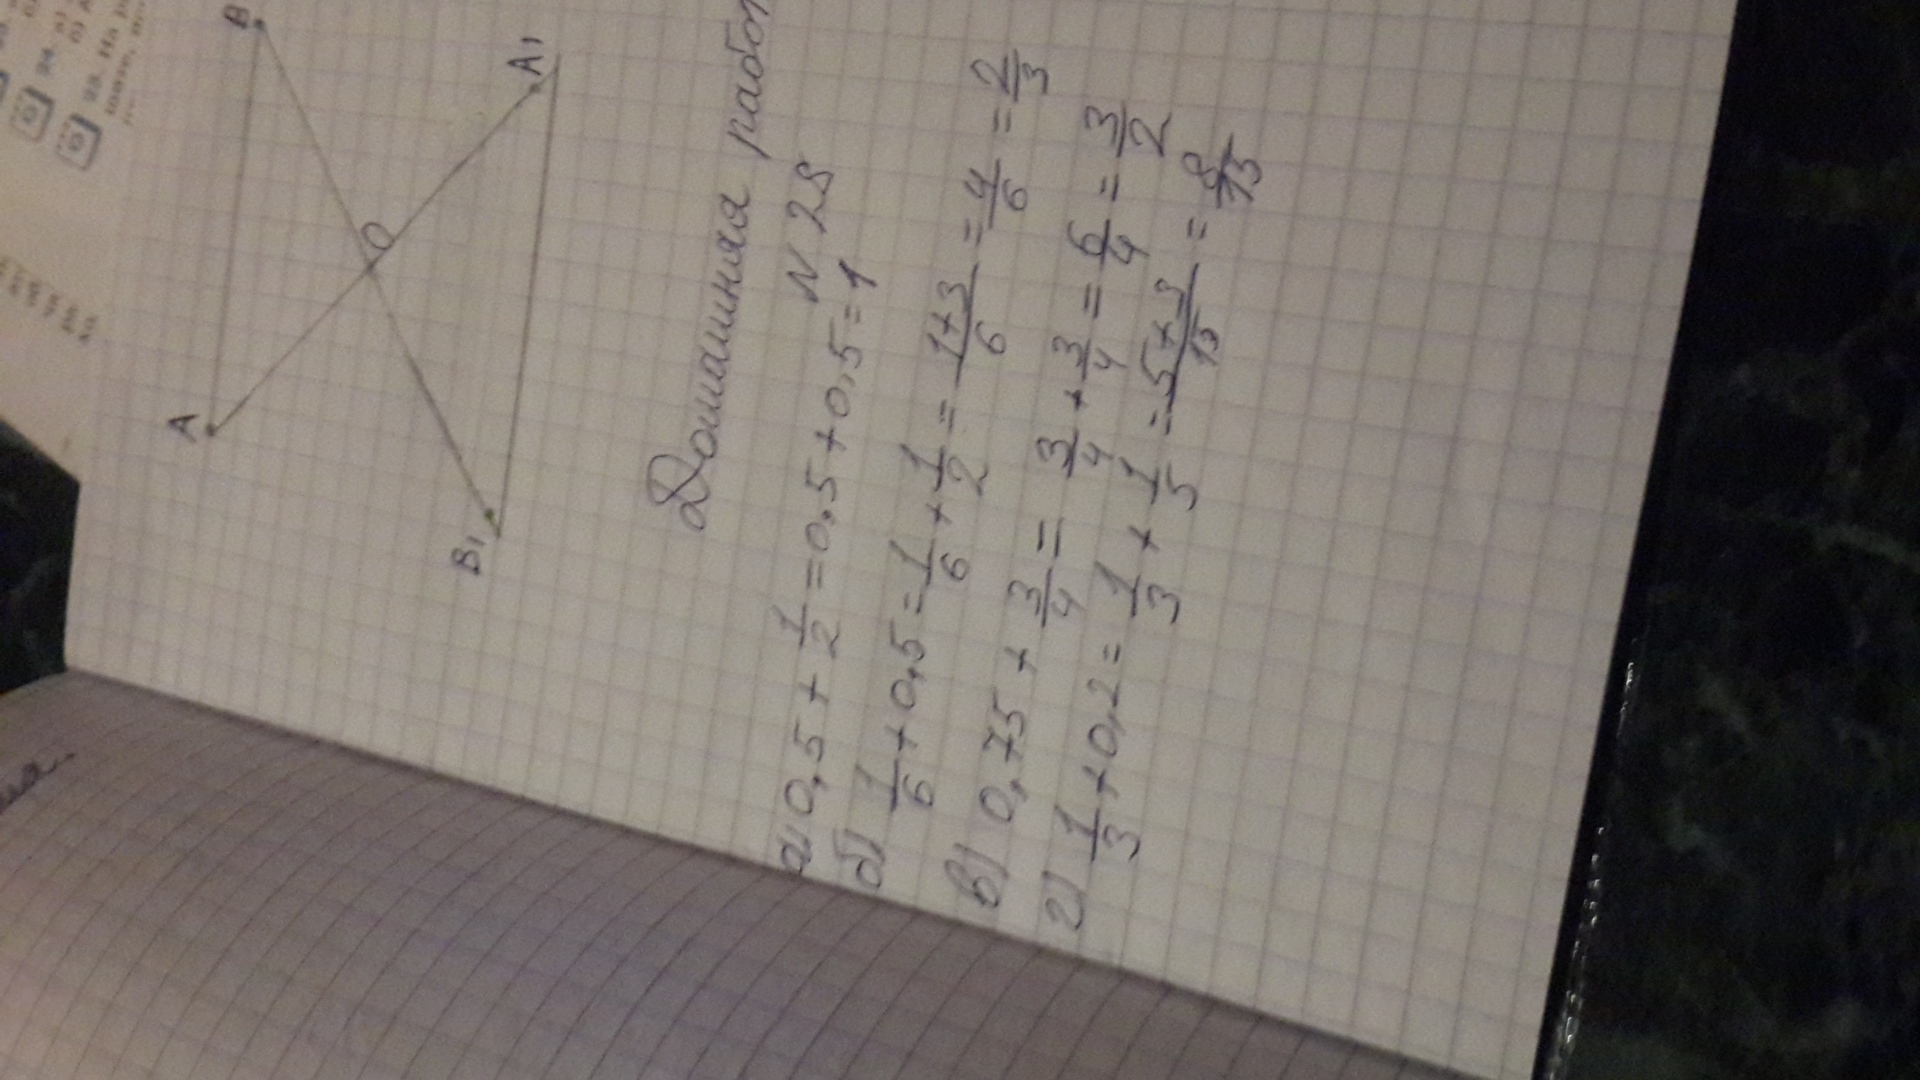 B
A
O
A1
B1
Домашняя
N 28
а) 0,5 + 1/2 = 0,5 + 0,5 = 1
б) 1/6 + 0,5 = 1/6 + 1/2 = 1+3/6 = 4/6 = 2/3
в) 0,75 + 3/4 = 3/4 + 3/4 = 6/4 = 3/2
г) 1/3 + 0,2 = 1/3 + 1/5 = 5+3/15 = 8/15